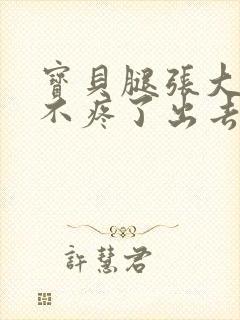 寶貝腿張大
不疼了出去
許慧君